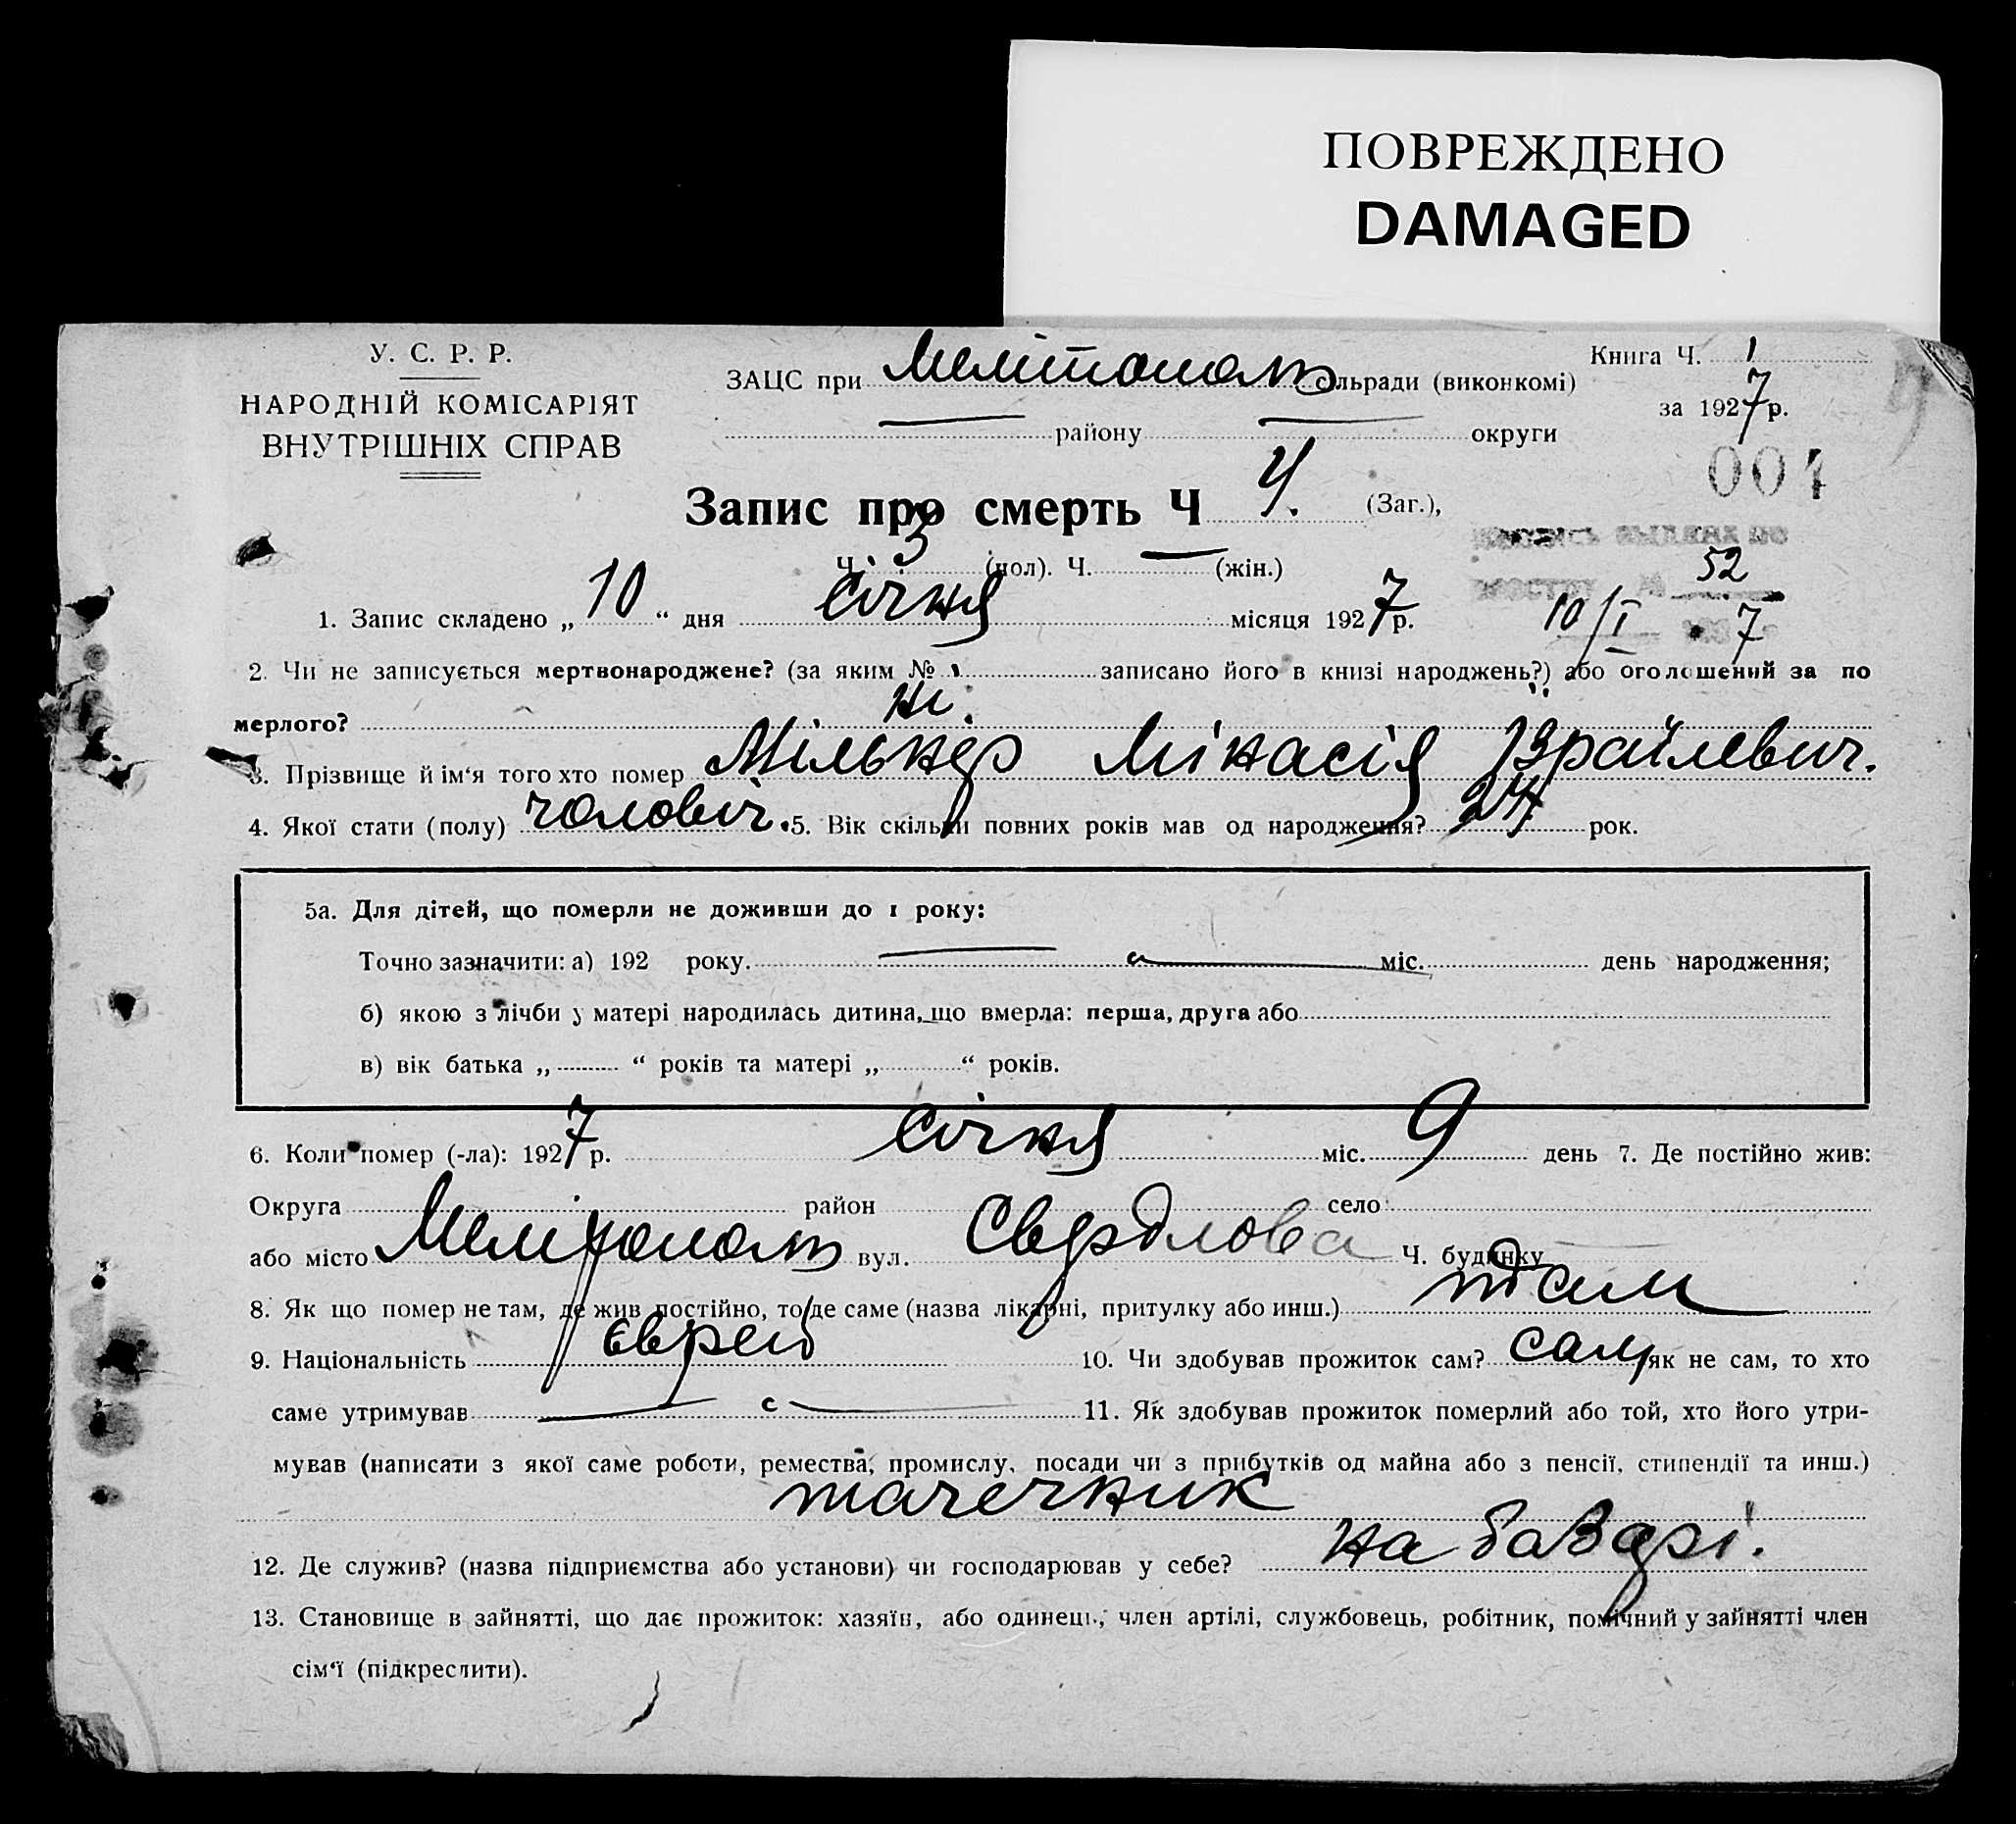 ПОВРЕЖДЕНО
DAMAGED
У. С. Р. Р.
НАРОДНІЙ КОМІСАРІЯТ
ВНУТРІШНІХ СПРАВ
ЗАЦС при Мелітопольс сільради (виконкомі)
району округи
Книга Ч. 1
за 1927 р.
004
Запис про смерть Ч 4. (Заг.),
Ч. 3 (чол). Ч. — (жін.)
52
10/I 7
1. Запис складено „ 10 “ дня січня місяця 1927 р.
2. Чи не записується мертвонароджене? (за яким № записано його в книзі народжень?) або оголошений за по
мерлого? ні.
3. Прізвище й ім‘я того хто помер Мількер Мікасія Ізраїлевич.
4. Якої стати (полу) чоловіч. 5. Вік скільки повних років мав од народження? 24 рок.
5а. Для дітей, що померли не доживши до 1 року:
Точно зазначити: а) 192 року. міс. день народження;
б) якою з лічби у матері народилась дитина, що вмерла: перша, друга або
в) вік батька „ “ років та матері „ “ років.
6. Коли помер (-ла): 1927 р. січня міс. 9 день 7. Де постійно жив:
Округа район село
або місто Мелітополь вул. Свердлова Ч. будинку
8. Як що помер не там, де жив постійно, то де саме (назва лікарні, притулку або инш.) там
9. Національність єврей 10. Чи здобував прожиток сам? сам як не сам, то хто
саме утримував 11. Як здобував прожиток померлий або той, хто його утри-
мував (написати з якої саме роботи, ремества, промислу, посади чи з прибутків од майна або з пенсії, стипендії та инш.)
тачечник
12. Де служив? (назва підприємства або установи) чи господарював у себе? на базарі.
13. Становище в зайнятті, що дає прожиток: хазяїн, або одинець, член артілі, службовець, робітник, помічний у зайнятті член
сім‘ї (підкреслити).